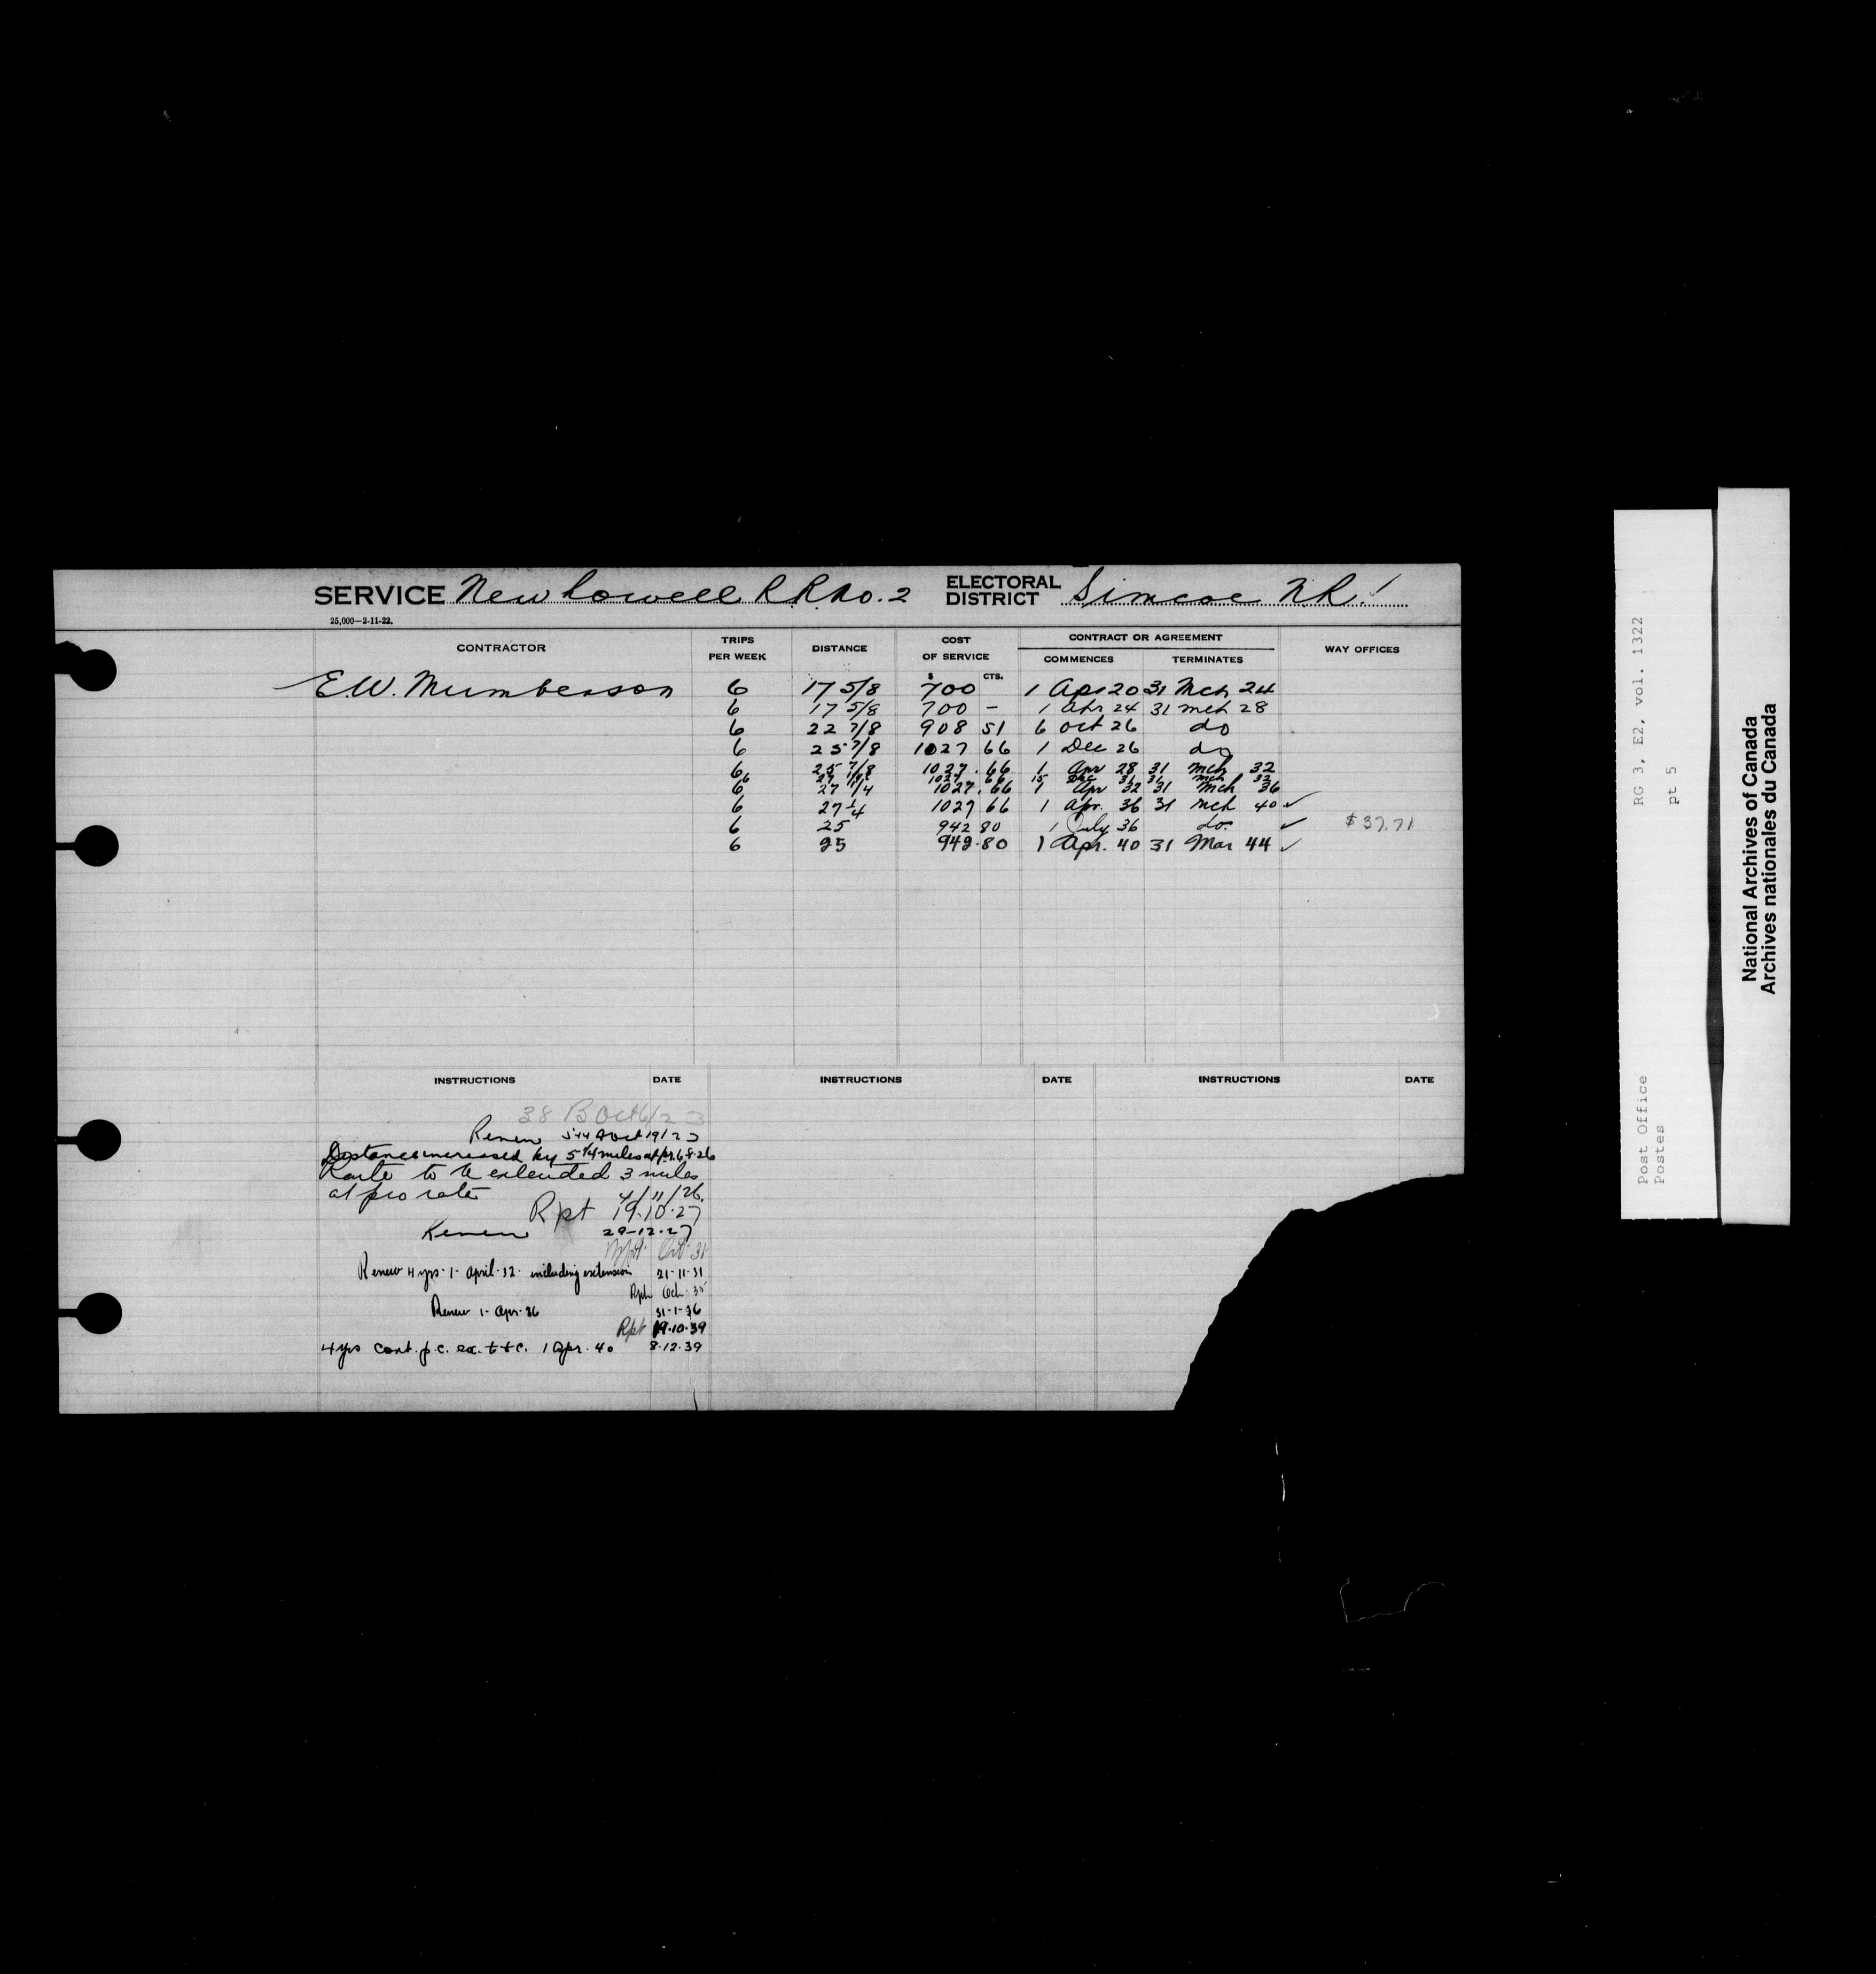 SERVICE New Lowell R R No. 2 ELECTORAL DISTRICT Simcoe N.R.
25,000—2-11-22.
CONTRACTOR TRIPS PER WEEK DISTANCE COST OF SERVICE CONTRACT OR AGREEMENT WAY OFFICES
COMMENCES TERMINATES
$ CTS.
E.W. Mumberson 6 17 5/8 700 1 Apr 20 31 Mch 24
6 17 5/8 700 — 1 Apr 24 31 Mch 28
6 22 7/8 908 51 6 Oct 26 do
6 25 7/8 1027 66 1 Dec 26 do
6 25 7/8 1027.66 1 Apr 28 31 Mch 32
6 27 1027 66 15 Dec 31 31 Mch 32
6 27 1/4 1027.66 1 Apr 32 31 Mch 36
6 27 1/4 1027 66 1 Apr. 36 31 Mch 40 ✓
6 25 942 80 1 July 36 do. ✓ $37.71
6 25 942.80 1 Apr. 40 31 Mar 44 ✓
INSTRUCTIONS DATE INSTRUCTIONS DATE INSTRUCTIONS DATE
38 B Oct 6/23
Renew 544 A Oct 19/23
Distance increased by 5 1/4 miles
Route to be extended 3 miles
at pro rate 4/11/26.
Rpt 19.10.27
Renew 29-12-27
Rpt Oct 31
Renew 4 yrs-1-April-32 including extension 21-11-31
Rpt Oct. 35
Renew 1-Apr-36 31-1-36
Rpt 19.10.39
4 yrs cont. p.c. ex. t+c. 1 Apr. 40 8.12.39
RG 3, E2, vol. 1322
pt 5
Post Office
Postes
National Archives of Canada
Archives nationales du Canada